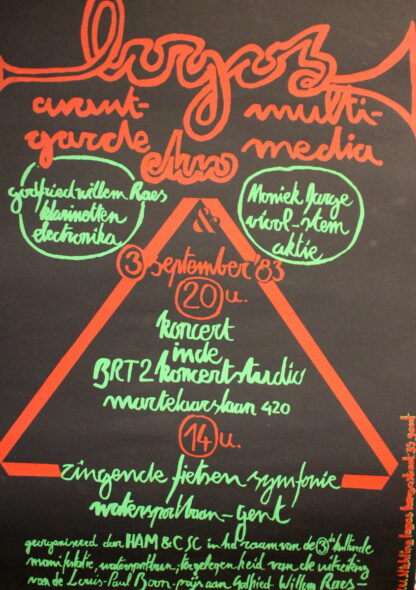 logos
avant- multi-
garde duo media
godfried willem Raes
klarinetten
elektronika
Moniek Darge
viool-stem
aktie
&
3 september '83
20u.
koncert
inde
BRT2 koncertstudio
martelaarslaan 420
14u.
zingende fietsen symfonie
watersportbaan-gent
georganiseerd door HAM & CSC in het raam van de 3de kulturele
manifestatie, watersportbaan, ter gelegenheid van de uitreiking
van de Louis-Paul Boon-prijs aan Godfried-Willem Raes-
stichting logos kongostraat 35 gent